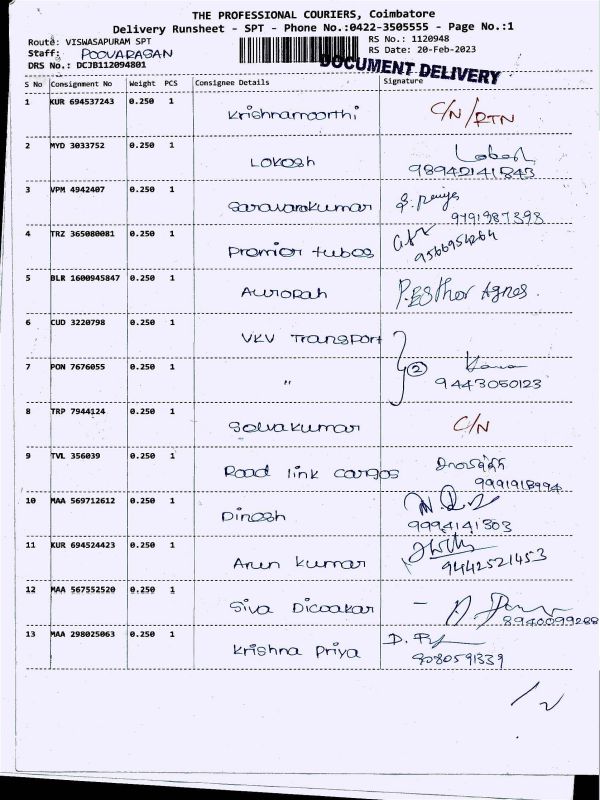 THE PROFESSIONAL COURIERS, Coimbatore
Delivery Runsheet - SPT - Phone No.:0422-3505555 - Page No.:1
Route: VISWASAPURAM SPT
RS No.: 1120948
Staff: POOVARASAN
RS Date: 20-Feb-2023
DRS No.: DCJB112094801
DOCUMENT DELIVERY
S No Consignment No Weight PCS Consignee Details Signature
1 KUR 694537243 0.250 1 Krishnamoorthi C/N/RTN
2 MYD 3033752 0.250 1 Lokesh
9894214 1843
3 VPM 4942407 0.250 1 Saravanakumar
9791987398
4 TRZ 365080081 0.250 1 Premier tubes
9566954264
5 BLR 1600945847 0.250 1 Aurorah P. Esther Agnes.
6 CUD 3220798 0.250 1 VKV Transport
7 PON 7676055 0.250 1 " 2
9443050123
8 TRP 7944124 0.250 1 Selvakumar C/N
9 TVL 356039 0.250 1 Road link cargos
9991918994
10 MAA 569712612 0.250 1 Dinesh
9994141303
11 KUR 694524423 0.250 1 Arun kumar
9442521453
12 MAA 567552520 0.250 1 Siva Dicoakar
8940099288
13 MAA 298025063 0.250 1 Krishna Priya
8080591339